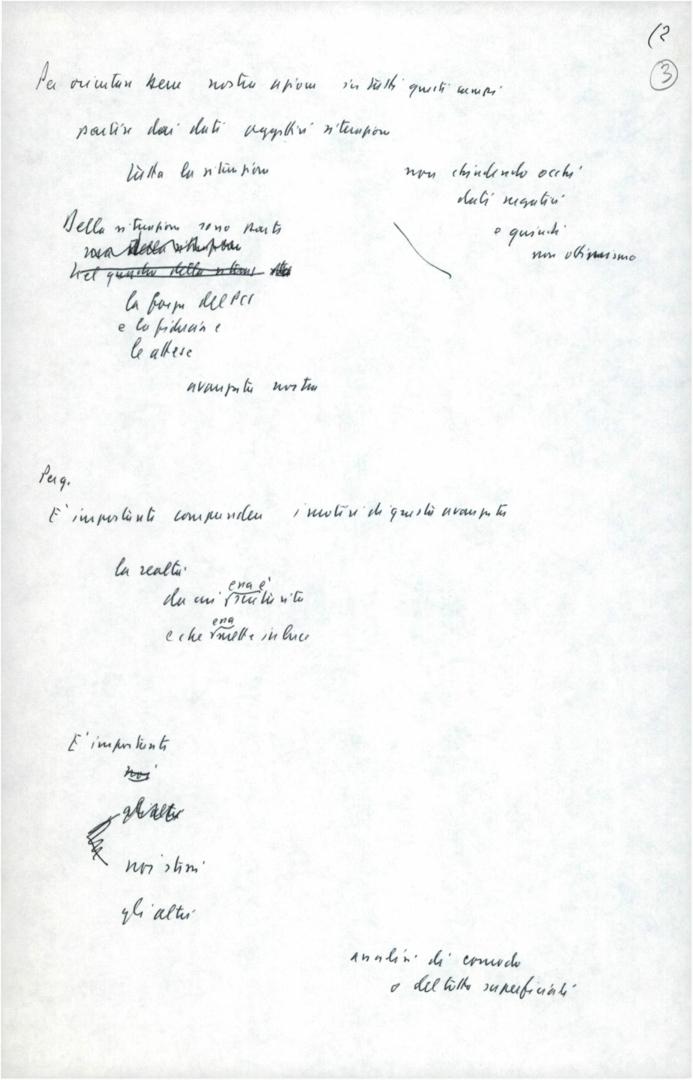 (2
3
Per orientare bene nostra azione in tutti questi campi
partire dai dati oggettivi situazione
tutta la situazione
non chiudendo occhi
dati negativi
o quindi
non ottimismo
Della situazione sono parte
Nel quadro della
la forza del PCI
e la fiducia e
le attese
avanzata nostra
Perg.
E' importante comprendere i motivi di questa avanzata
la realtà
da cui essa è scaturita
e che essa mette in luce
E' importante
noi
gli altri
noi stessi
gli altri
analisi di comodo
o del tutto superficiali